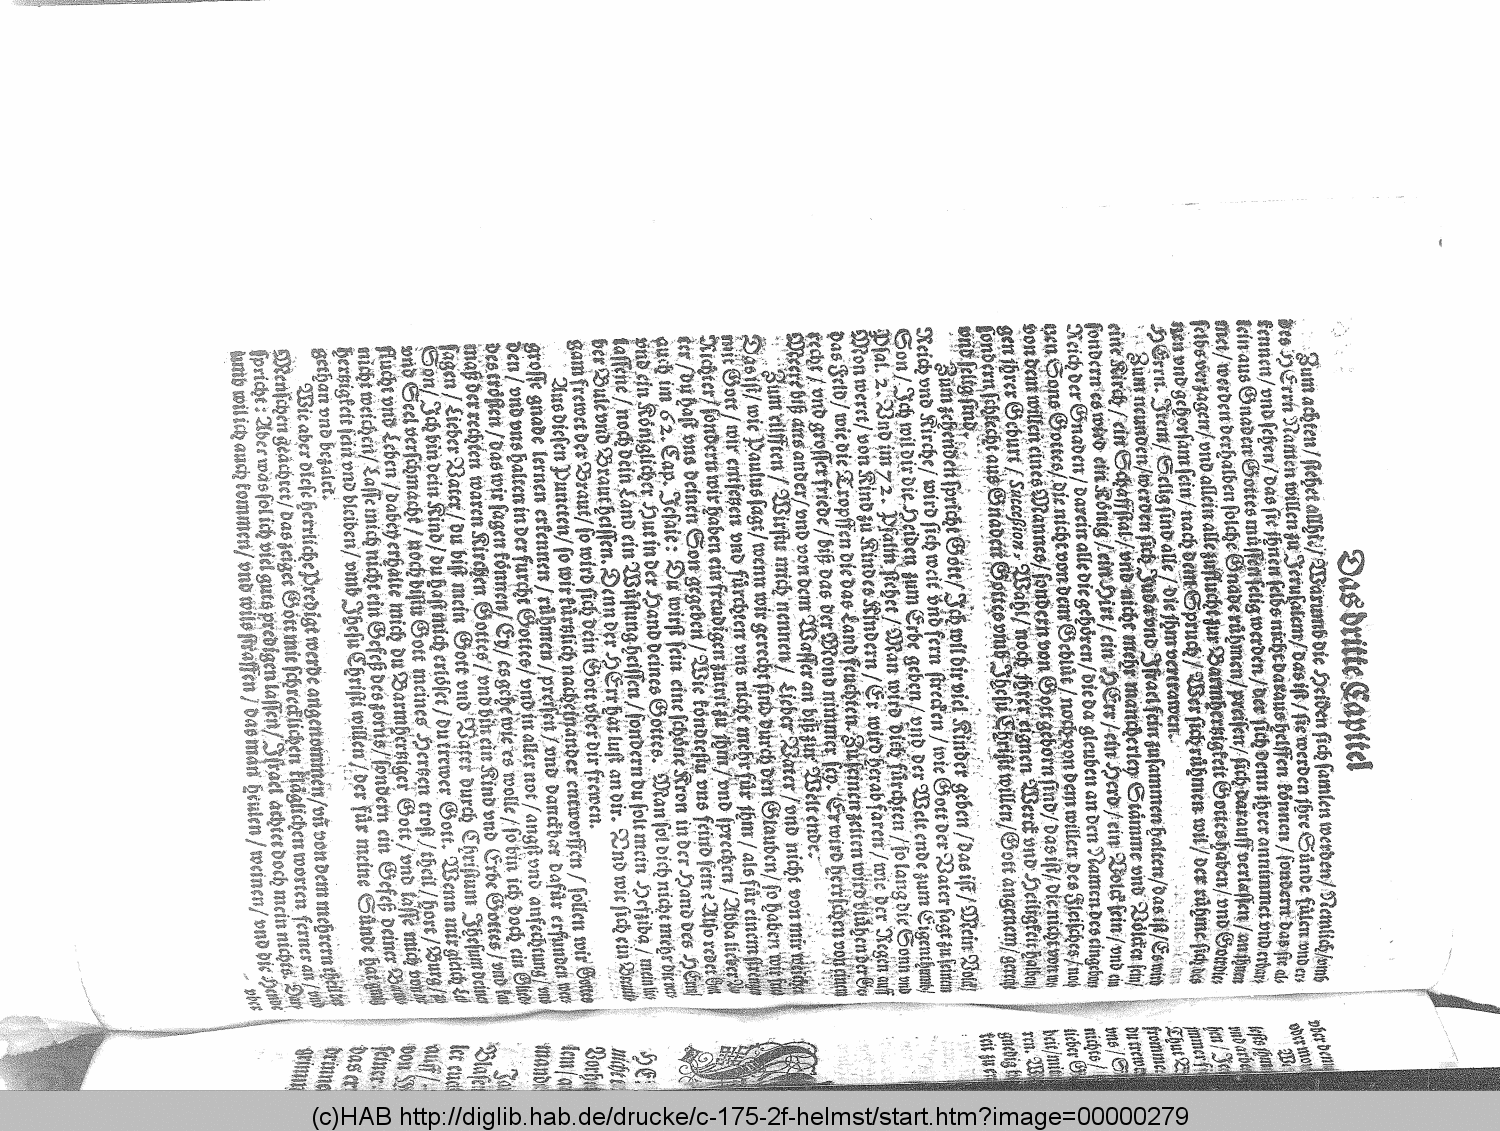 Das dritte Capittel
Zum achten / stehet allhie / Warumb die Heiden sich samlen werden / Nemlich / umb
des HErrn Namen willen zu Jerusalem / das ist / sie werden ihre Sünde fülen und er-
kennen / und sehen / das sie ihnen selbs nicht daraus helffen können / sondern das sie al-
lein aus Gnaden Gottes müssen selig werden / der sich denn ihrer annimmet und erbar-
met / werden derhalben solche Gnade rühmen / preissen / sich darauff verlassen / an ihnen
selbs verzagen / und allein alle zuflucht zur Barmhertzigkeit Gottes haben / und Gott die-
nen und gehorsam sein / nach dem Spruch / Wer sich rühmen wil / der rühme sich des
HErrn. Item / Selig sind alle / die ihm vertrawen.
Zum neunden / werden sich Juda und Israel fein zusammen halten / das ist / Es wird
eine Kirch / ein Schaffstal / und nicht mehr mancherley Stämme und Völcker sein /
sondern es wird ein König / ein Hirt / ein HErr / ein Herd / ein Volck sein / und ein
Reich der Gnaden / darein alle die gehören / die da gleuben an den Namen des eingebor-
nen Sons Gottes / die nicht von dem Geblüt / noch von dem willen des Fleisches / noch
von dem willen eines Mannes / sondern von Gott geborn sind / das ist / die nicht von we-
gen ihrer Geburt / Succession, Wahl / noch ihrer eignen Werck und Heiligkeit halben /
sondern schlecht aus Gnaden Gottes umb Jhesu Christi willen / Gott angenem / gerecht
und selig sind.
Zum zehenden spricht Gott / Ich wil dir viel Kinder geben / das ist / Mein Volck
Reich und Kirche / wird sich weit und fern strecken / wie Gott der Vater sagt zu seinem
Son / Ich wil dir die Heiden zum Erbe geben / und der Welt ende zum Eigenthumb /
Psal. 2. Und im 72. Psalm stehet / Man wird dich fürchten / so lang die Sonn und
Mon weret / von Kind zu Kindes Kindern / Er wird herab faren / wie der Regen auff
das Feld / wie die Tropffen die das Land feuchten. Zu seinen zeiten wird blühen der Ge-
recht / und grosser friede / biß das der Mond nimmer sey. Er wird herrschen von einem
Meere biß ans ander / und von dem Wasser an biß zur Welt ende.
Zum eilfften / Wirstu mich nennen / Lieber Vater / und nicht von mir weichen
Das ist / wie Paulus sagt / wenn wir gerecht sind durch den Glauben / so haben wir fried
mit Gott / wir entsetzen und fürchten uns nicht mehr für ihm / als für einem strengen
Richter / sondern wir haben ein freudigen zutrit zu ihm / und sprechen / Abba lieber Va-
ter / du hast uns deinen Son gegeben / Wie köndestu uns feind sein? Also redet Gott
auch im 62. Cap. Jesaie: Du wirst sein eine schöne Kron in der Hand des HErrn
und ein Königlicher Hut in der Hand deines Gottes. Man sol dich nicht mehr die ver-
lassene / noch dein Land ein Wüstung heissen / sondern du solt mein Hefziba / mein lie-
ber Bule und Braut heissen. Denn der HErr hat lust an dir. Und wie sich ein Breuti-
gam frewet der Braut / so wird sich dein Gott uber dir frewen.
Aus diesen Puncten / so wir kürtzlich nacheinander entworffen / sollen wir Gottes
grosse gnade lernen erkennen / rühmen / preisen / und danckbar dafür erfunden wer-
den / und uns halten in der furcht Gottes / und in aller not / angst und anfechtung / uns
des trösten / das wir sagen können / Ey / es gehe wie es wolle / so bin ich doch ein Glied-
maß der rechten waren Kirchen Gottes / und bin ein Kind und Erbe Gottes / und kan
sagen / Lieber Vater / du bist mein Gott und Vater durch Christum Jhesum deinen
Son / Ich bin dein Kind / du hast mich erlöset / du trewer Gott. Wenn mir gleich Leib
und Seel verschmacht / noch bistu Gott meines Hertzen trost / theil / hort / Burg / zu-
flucht und Leben / dabey erhalte mich du Barmhertziger Gott / und lasse mich von dir
nicht weichen / Lasse mich nicht ein Gefeß des zorns / sondern ein Gefeß deiner Barm-
hertzigkeit sein und bleiben / umb Jhesu Christi willen / der für meine Sünde hat gnug
gethan und bezalet.
Wie aber diese herrliche Predigt werde angenommen / von dem mehrern theil der
Menschen geachtet / das zeiget Gott mit schrecklichen kläglichen worten ferner an / und
spricht: Aber was sol ich viel guts predigen lassen / Israel achtet doch mein nichts. Dar-
umb wil ich auch kommen / und wils straffen / das man heulen / weinen / und die Hende
uber
(c)HAB http://diglib.hab.de/drucke/c-175-2f-helmst/start.htm?image=00000279